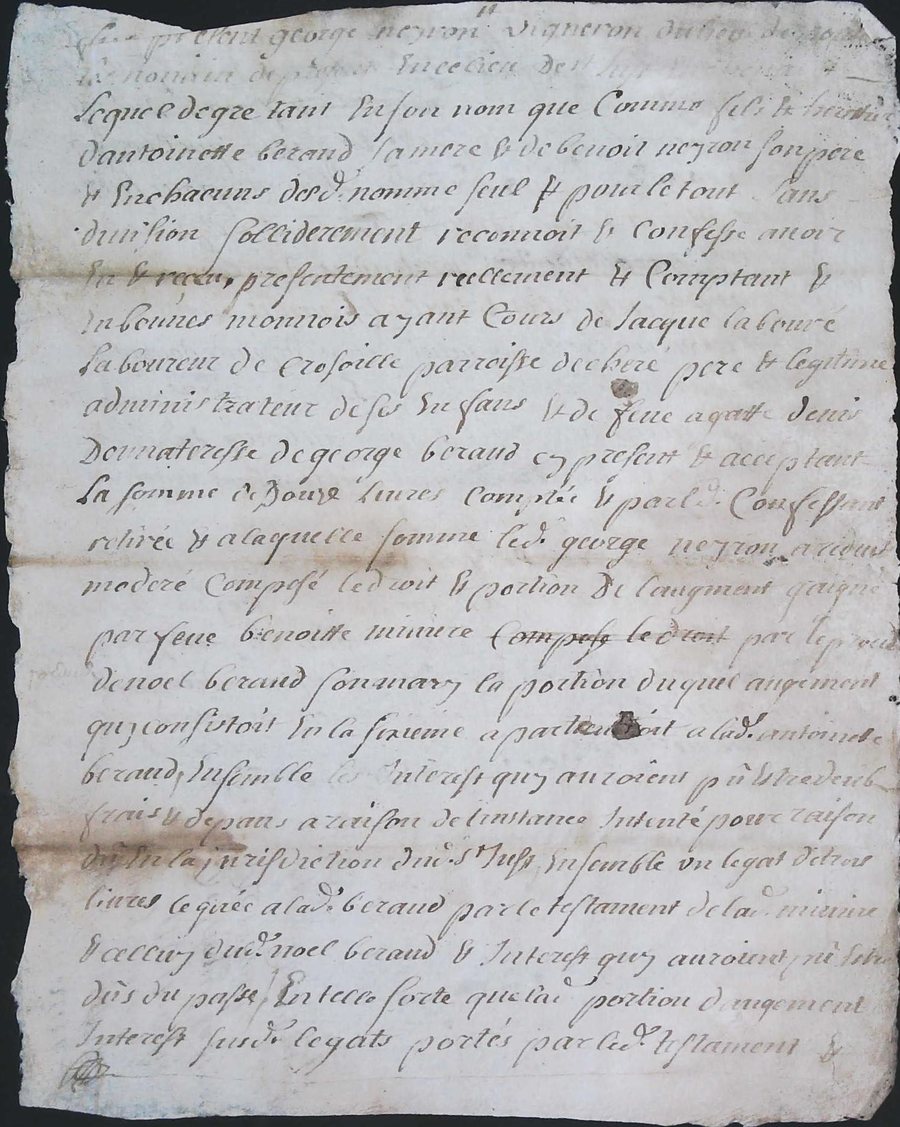 present george neyron vigneron du lieu de
Lequel de gre tant En son nom que Comme fils & heritier
dantoinette beraud sa mere & de benoit neyron son pere
& En chacuns desd. nomme seul & pour le tout sans
division solliderement reconnoit & Confesse avoir
Eu & receu, presentement reellement & Comptant &
En bonnes monnois ayant Cours de Jacque labouré
Laboureur de Crosoille parroisse de cheré pere & legitime
administrateur de ses Enfans & de feue agatte denis
Donnateresse de george beraud cy present & acceptant
La somme de Douze livres Comptée & par led. Confessant
retirée & a laquelle somme led. george neyron a reduit
moderé Composé le droit & portion De laugment gaigné
par feue benoitte miniere Compose le droit par le
de noel beraud son mary la portion duquel augement
quy consistoit En la sixieme apartenoit a lad. antoinette
beraud, Ensemble les Interest quy auroient pû Estre
frais & depans a raison de linstance Intenté pour raison
En la jurisdiction dud. St Just, Ensemble un legat de trois
livres leguée a lad. beraud par le testament de lad. miniere
& celluy dud. noel beraud & Interest quy auroient pû Estre
dûs du passé, En telle sorte que lad. portion daugement
Interest susd. legats portés par led. testament &